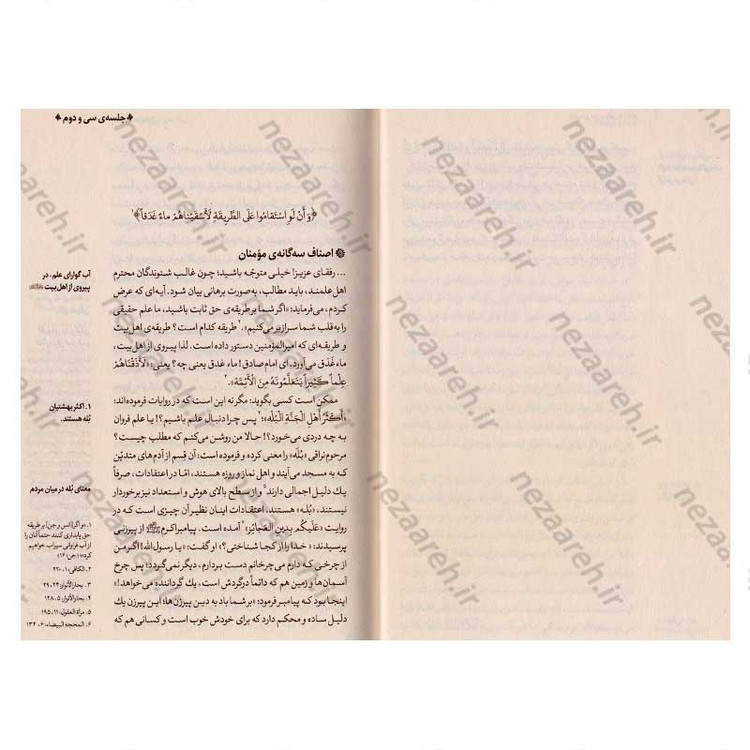 جلسه‌ی سی و دوم
﴿وَ أَنْ لَوِ اسْتَقَامُوا عَلَى الطَّرِيقَةِ لَأَسْقَيْنَاهُمْ مَاءً غَدَقاً﴾۱
اصناف سه‌گانه‌ی مؤمنان
... رفقای عزیز! خیلی متوجّه باشید؛ چون غالب شنوندگان محترم
اهل علمند، باید مطالب، به‌صورت برهانی بیان شود. آیه‌ای که عرض
کردم، می‌فرماید: «اگر شما بر طریقه‌ی حق ثابت باشید، ما علم حقیقی
را به قلب شما سرازیر می‌کنیم».۲ طریقه کدام است؟ طریقه‌ی اهل بیت
و طریقه‌ای که امیرالمؤمنین دستور داده است. لذا پیروی از اهل بیت،
ماء غَدَق می‌آورد. ای امام صادق! ماء غدق یعنی چه؟ یعنی: «لَأَذَقْنَاهُمْ
عِلْماً كَثِيراً يَتَعَلَّمُونَهُ مِنَ الْأَئِمَّةِ».۳
ممکن است کسی بگوید: مگر نه این است که در روایات فرموده‌اند:
«أَكْثَرُ أَهْلِ الْجَنَّةِ الْبُلْهُ»؛۴ پس چرا دنبال علم باشیم؟! یا علم فروان
به چه دردی می‌خورد؟! حالا من روشن می‌کنم که مطلب چیست؟
مرحوم نراقی «بُلْه» را معنی کرده و فرموده است: آن قِسم از آدم‌های متدیّن
که به مسجد می‌آیند و اهل نماز و روزه هستند، امّا در اعتقادات، صرفاً
یک دلیل اجمالی دارند۵ و از سطح بالای هوش و استعداد نیز برخوردار
نیستند، «بُله» هستند. اعتقادات اینان نظیر آن چیزی است که در
روایت «عَلَيْكُم بِدِينِ الْعَجَائِزِ»۶ آمده است. پیامبر اکرم ﷺ از پیرزنی
پرسیدند: «خدا را از کجا شناختی؟»، او گفت: «یا رسول الله! اگر من
از چرخی که دارم می‌چرخانم دست بردارم، دیگر نمی‌گردد؛ پس چرخ
آسمان‌ها و زمین هم که دائماً در گردش است، یک گرداننده می‌خواهد!»
اینجا بود که پیامبر فرمود: «بر شما باد به دین پیرزن‌ها؛ این پیرزن یک
دلیل ساده و محکم دارد که برای خودش خوب است و کسانی هم که
آب گوارای علم، در
پیروی از اهل بیت
۱. اکثر بهشتیان
بُله هستند.
معنای بُله در میان مردم
۱. «و اگر [انس و جن] بر طریقه
حق پایداری کنند حتماً آنان را
از آب فراوانی سیراب خواهیم
کرد» (جن: ۱۶)
۲. الکافی: ۱، ۲۲۰.
۳. بحار الأنوار: ۲۴، ۲۹
۴. بحار الأنوار: ۵، ۱۲۸
۵. مرآة العقول: ۱۱، ۱۹۵
۶. المحجه البیضاء: ۶، ۱۳۴
nezaareh.ir
nezaareh.ir
nezaareh.ir
nezaareh.ir
nezaareh.ir
nezaareh.ir
nezaareh.ir